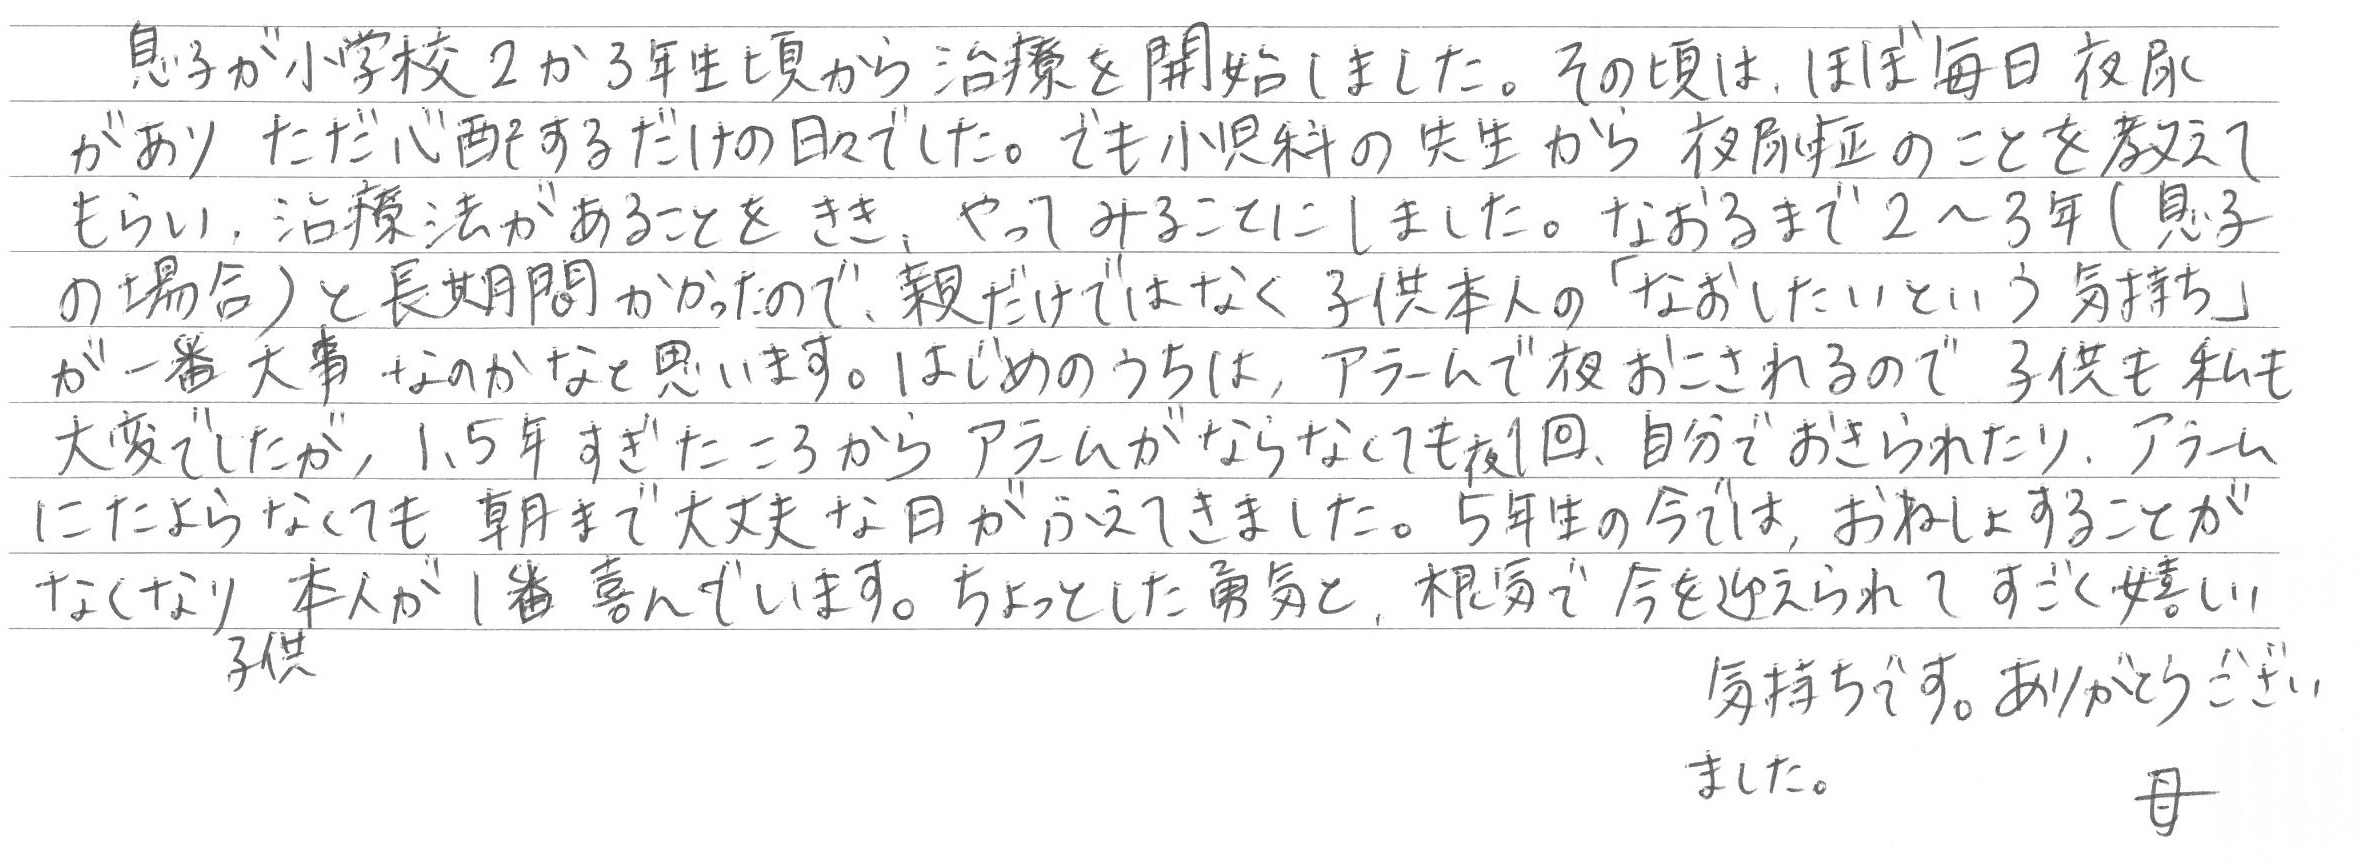 息子が小学校2か3年生頃から治療を開始しました。その頃は、ほぼ毎日夜尿
があり ただ心配するだけの日々でした。でも小児科の先生から 夜尿症のことを教えて
もらい、治療法があることをきき、やってみることにしました。なおるまで2〜3年(息子
の場合)と長期間かかったので、親だけではなく子供本人の「なおしたいという気持ち」
が一番大事なのかなと思います。はじめのうちは、アラームで夜おこされるので子供も私も
大変でしたが、1、5年すぎたころからアラームがならなくても夜1回、自分でおきられたり、アラーム
にたよらなくても 朝まで大丈夫な日がふえてきました。5年生の今では、おねしょすることが
なくなり 本人が1番喜んでいます。ちょっとした勇気と、根気で今を迎えられてすごく嬉しい
子供
気持ちです。ありがとうござい
ました。
母